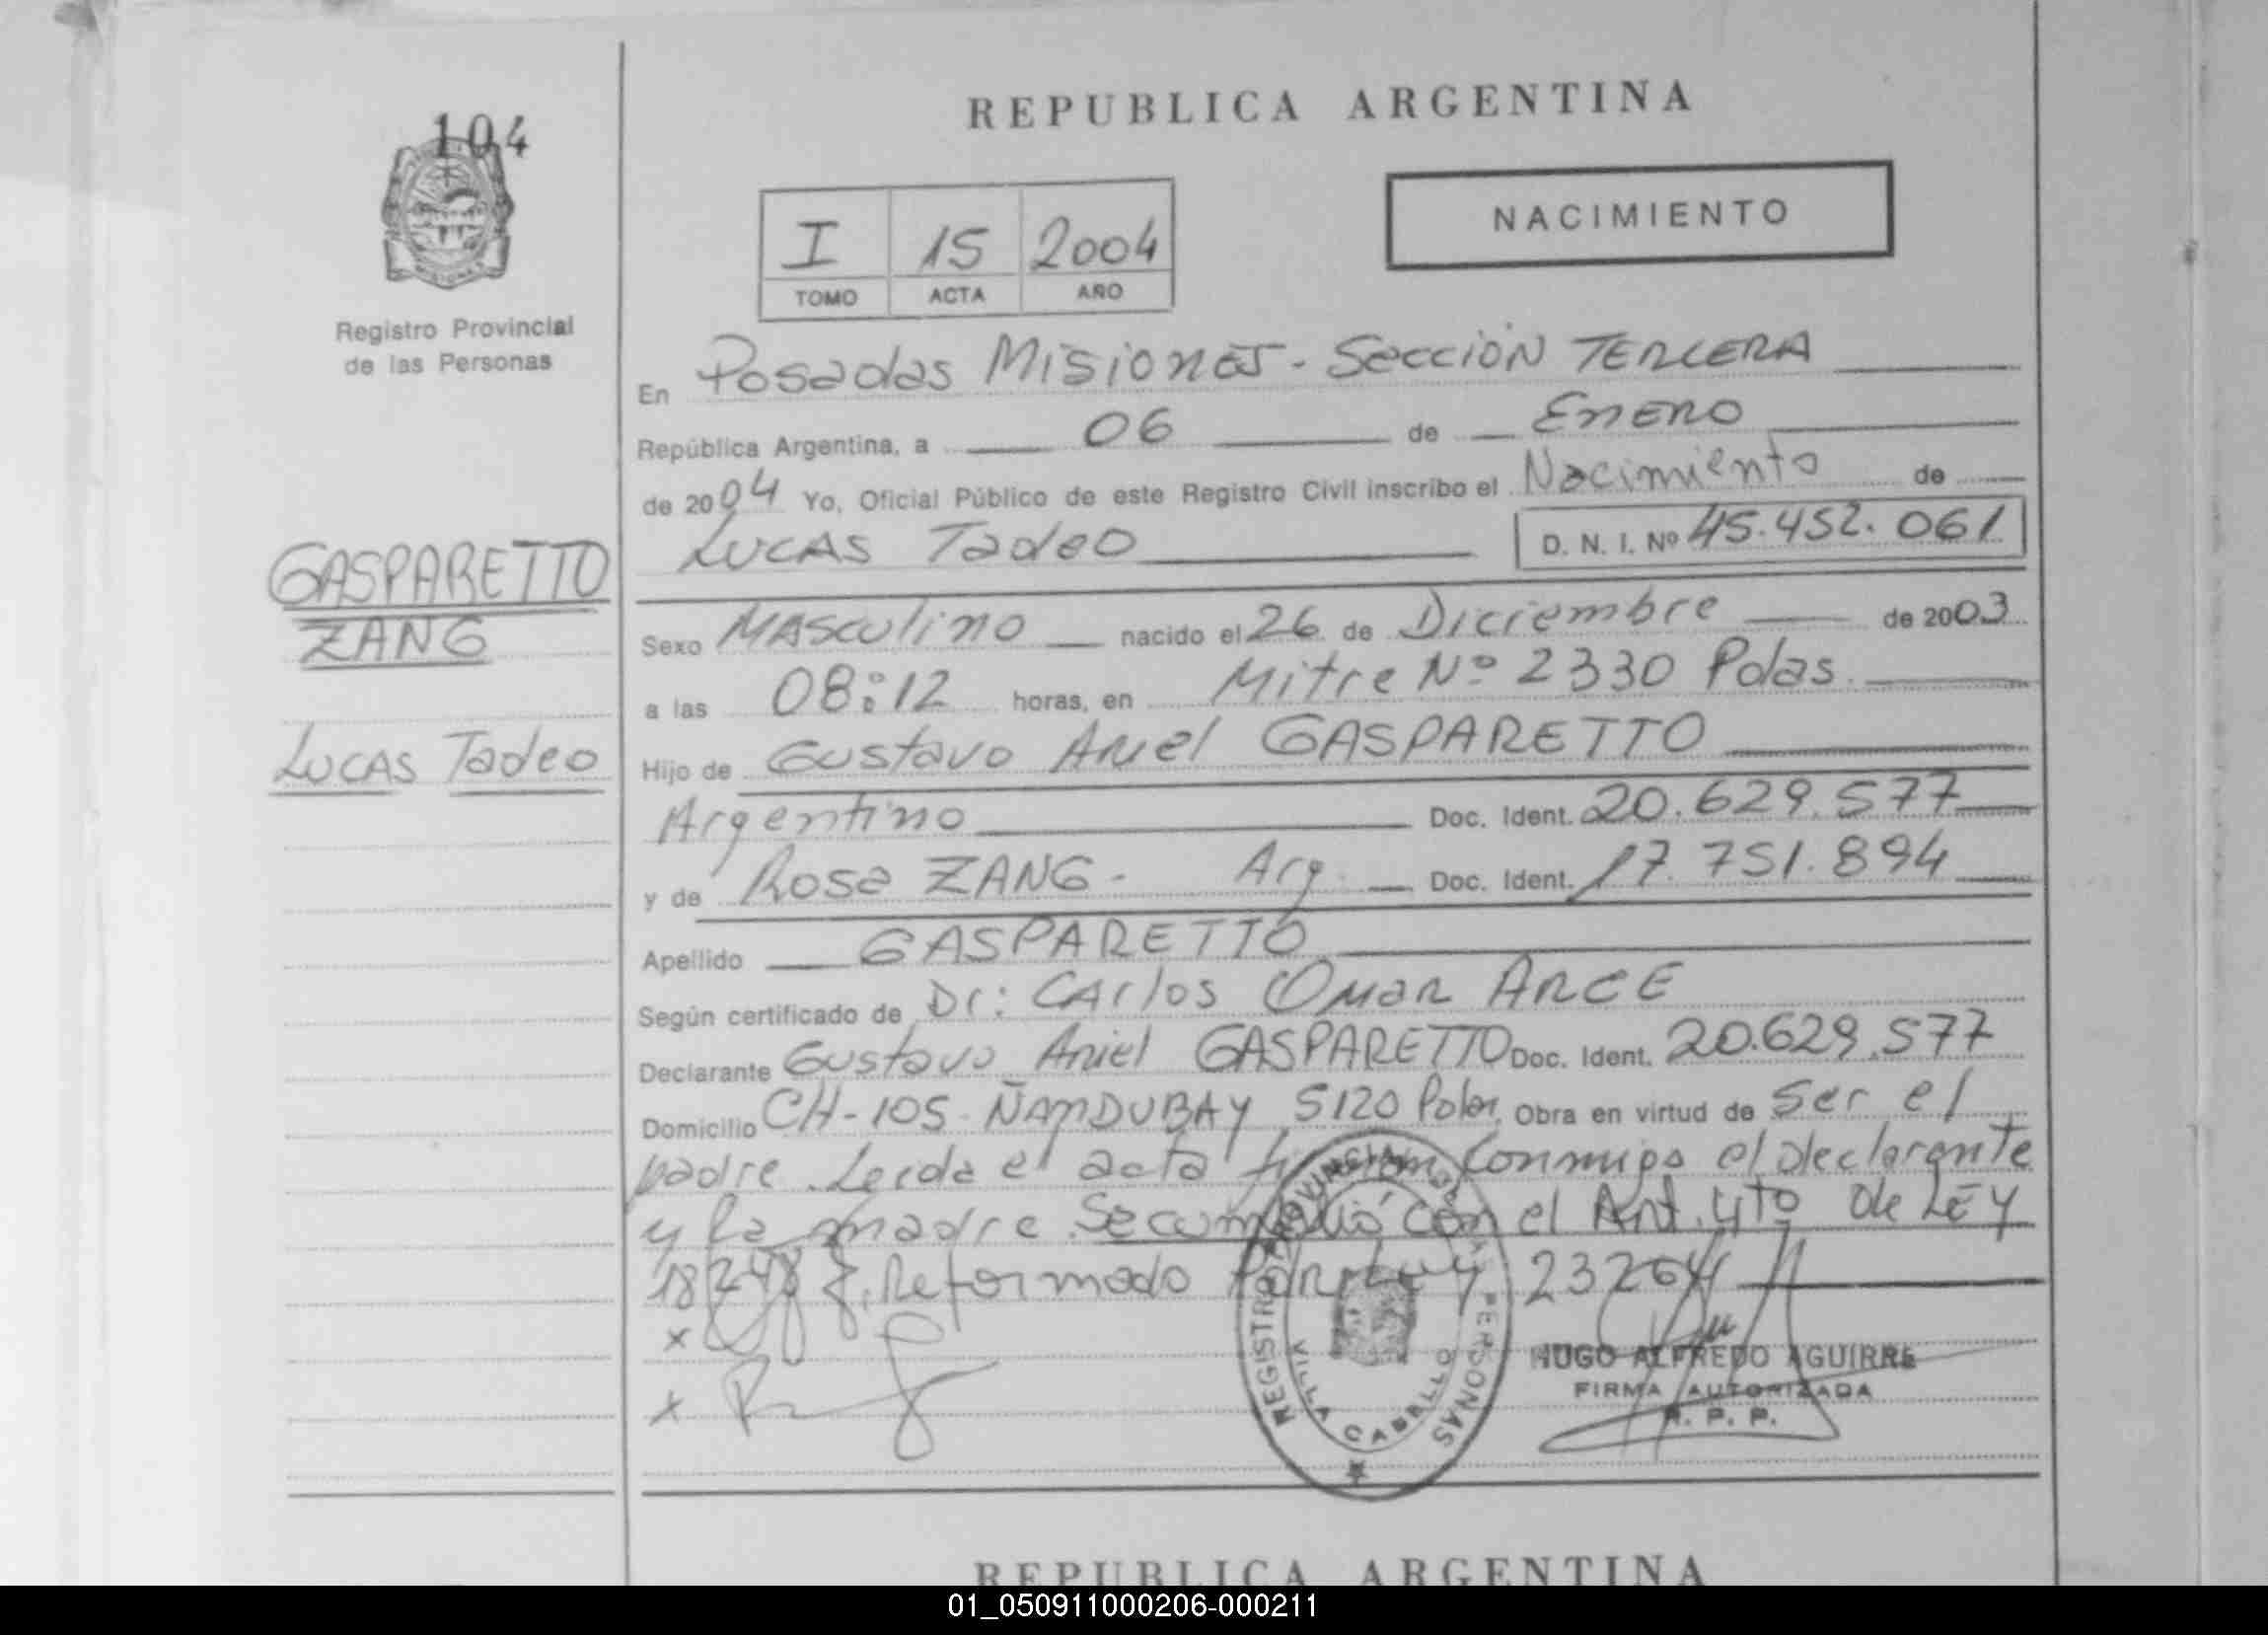 104
Registro Provincial
de las Personas
GASPARETTO
ZANG
Lucas Tadeo
REPUBLICA ARGENTINA
NACIMIENTO
I 15 2004
TOMO ACTA AÑO
En Posadas Misiones - Sección TERCERA
República Argentina, a 06 de ENERO
de 2004 Yo, Oficial Público de este Registro Civil inscribo el Nacimiento de
LUCAS Tadeo D. N. I. Nº 45.452.061
Sexo MAsculino nacido el 26 de Diciembre de 2003
a las 08:12 horas, en Mitre Nº 2330 Pdas.
Hijo de Gustavo Ariel GASPARETTO
Argentino Doc. Ident. 20.629.577
y de Rosa ZANG - Arg. Doc. Ident. 17.751.894
Apellido GASPARETTO
Según certificado de Dr: CArlos Omar ARCE
Declarante Gustavo Ariel GASPARETTO Doc. Ident. 20.629.577
Domicilio CH-105 - ÑANDUBAY 5120 Obra en virtud de Ser el
padre. Leida el acta firman conmigo el declarante
y la madre. Se cumplió con el Art. 4to de LEY
18248 Reformado Por Ley 23264
x
x
REGISTRO PROVINCIAL DE LAS PERSONAS
VILLA CABELLO
HUGO ALFREDO AGUIRRE
FIRMA AUTORIZADA
R. P. P.
REPUBLICA ARGENTINA
01_050911000206-000211